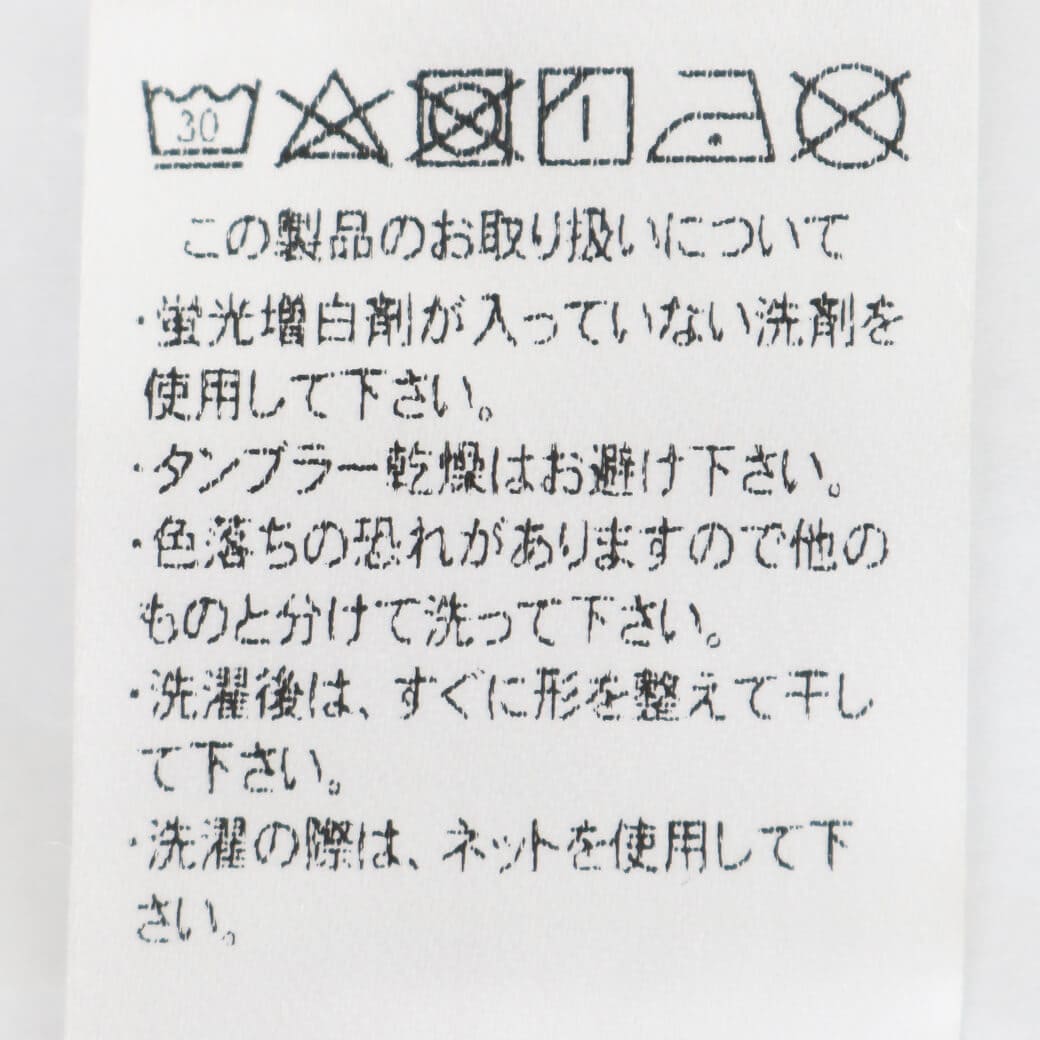 30
この製品のお取り扱いについて
・蛍光増白剤が入っていない洗剤を
使用して下さい。
・タンブラー乾燥はお避け下さい。
・色落ちの恐れがありますので他の
ものと分けて洗って下さい。
・洗濯後は、すぐに形を整えて干し
て下さい。
・洗濯の際は、ネットを使用して下
さい。